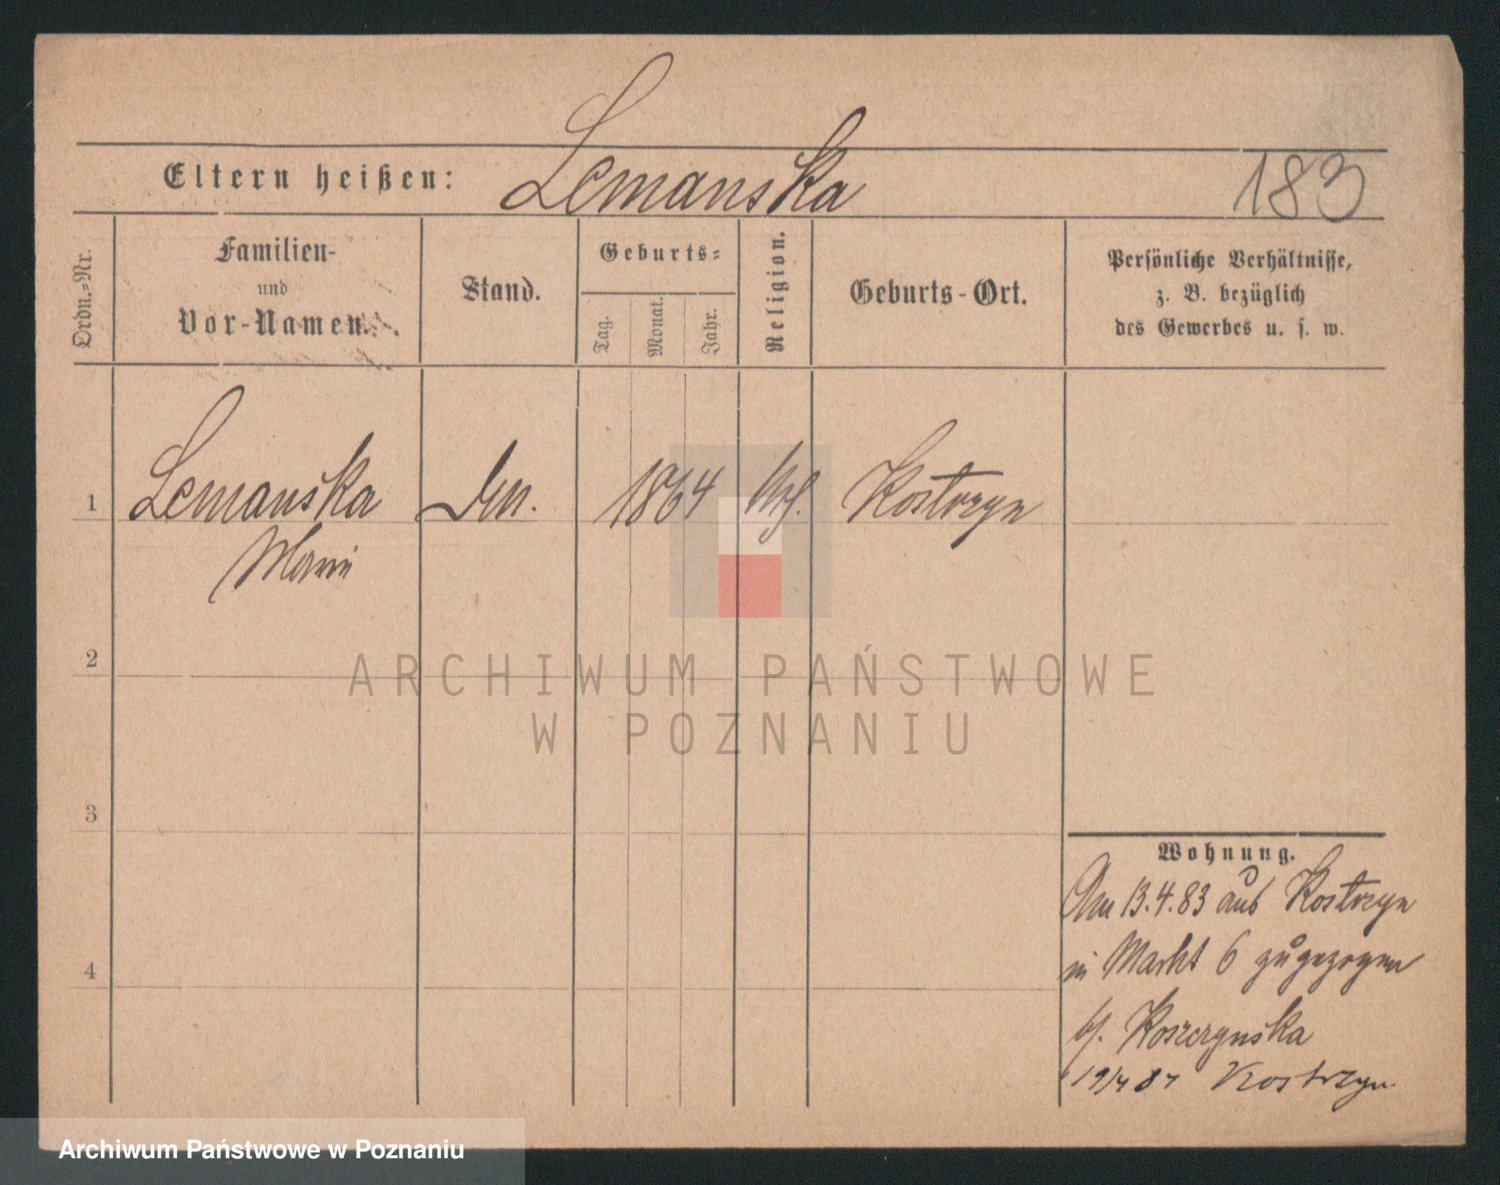 Eltern heißen: Lemanska 183
Ordn.-Nr.
Familien-
und
Vor-Namen.
Stand.
Geburts-
Tag.
Monat.
Jahr.
Religion.
Geburts-Ort.
Persönliche Verhältnisse,
z. B. bezüglich
des Gewerbes u. s. w.
1 Lemanska 1864 Kostrzyn
Marie
2
ARCHIWUM PAŃSTWOWE
W POZNANIU
3
4
Wohnung.
Am 13.4.83 aus Kostrzyn
in Markt 6 zugezogen
Koszczynska
Kostrzyn
Archiwum Państwowe w Poznaniu